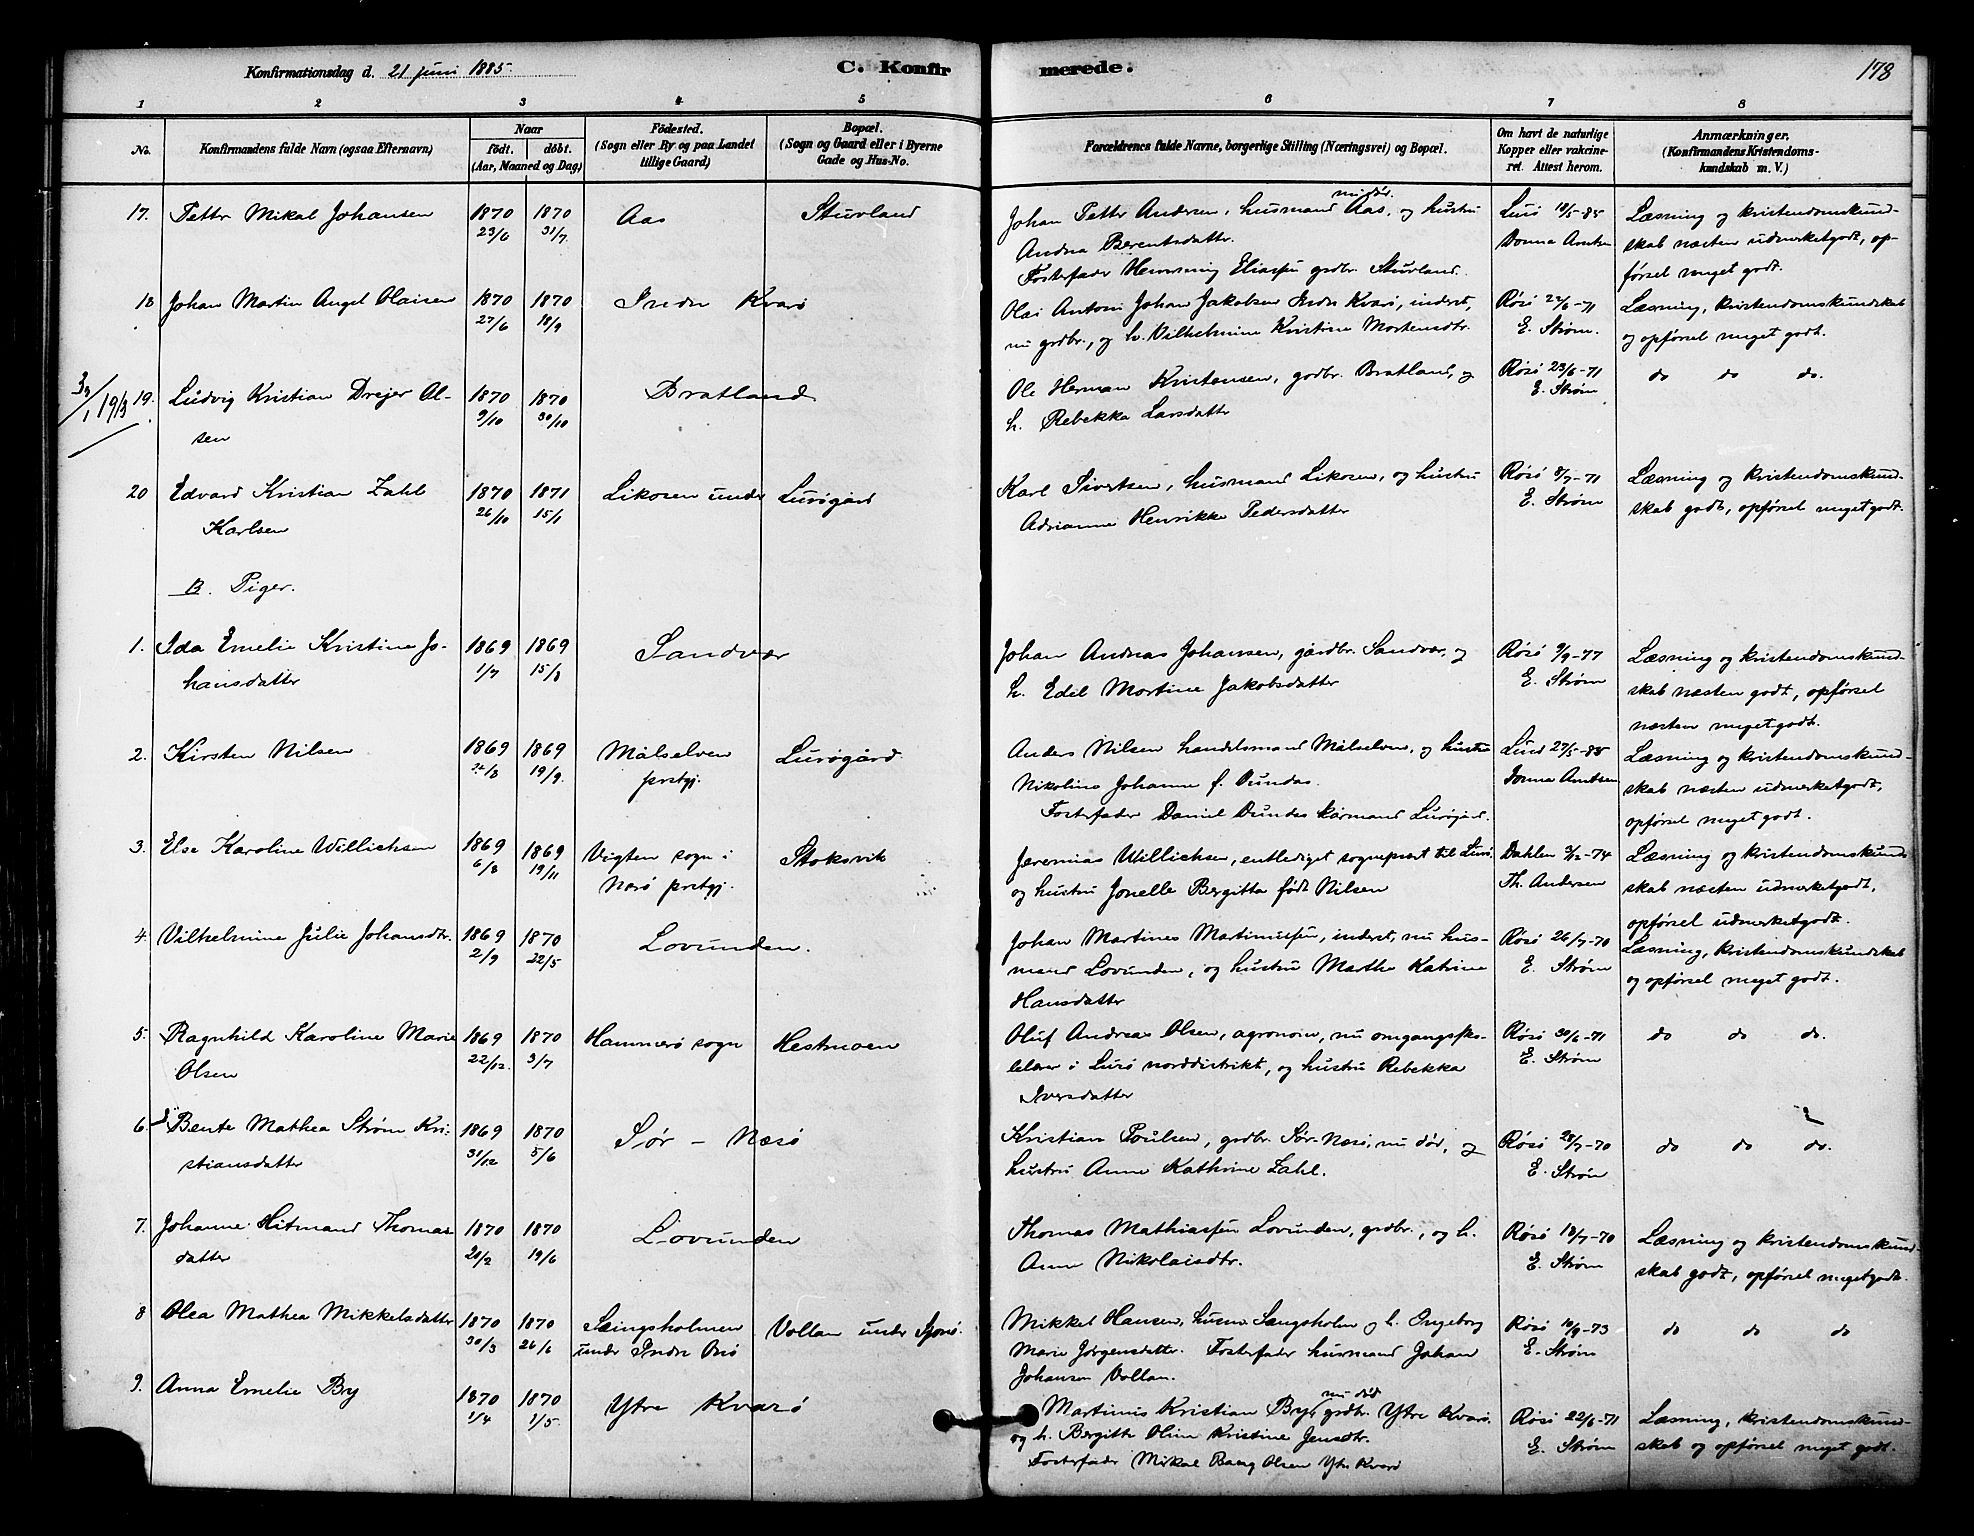 Konfirmationsdag d. 21 juni 1885.
C. Konfirmerede.
178
1 2 3 4 5 6 7 8
No.
Konfirmandens fulde Navn (ogsaa Efternavn)
Naar
født. døbt.
(Aar, Maaned og Dag)
Fødested.
(Sogn eller By og paa Landet
tillige Gaard)
Bopæl.
(Sogn og Gaard eller i Byerne
Gade og Hus-No.
Forældrenes fulde Navne, borgerlige Stilling (Næringsvei) og Bopæl.
Om havt de naturlige
Kopper eller vakcine-
ret. Attest herom.
Anmærkninger.
(Konfirmandens Kristendoms-
kundskab m. V.)
17. Petter Mikal Johansen 1870 23/6 1870 31/7 Aas Stuvland
Johan Petter Andersen, husmand Aas, nu død. og hustru
Andrea Berentsdatter.
Fosterfader Henning Eliassen grdbr. Stuvland.
Lurö 18/5-85
Donna Arntsen
Læsning og kristendomskund-
skab næsten udmerketgodt, op-
førsel meget godt.
18 Johan Martin Angel Olaisen 1870 27/6 1870 18/9 Indre Kvarö
Olai Antoni Johan Jakobsen Indre Kvarö, inderst,
nu grdbr., og h. Vilhelmine Kristine Mortensdtr.
Rösö 27/6-71
E. Strøm.
Læsning, kristendomskundskab
og opførsel meget godt.
3/1 1913
19. Ludvig Kristian Drejer Ol-
sen 1870 9/10 1870 30/10 Bratland
Ole Herman Kristensen, grdbr. Bratland, og
h. Rebekka Larsdatter
Rösö 23/6-71
E. Strøm
do do do.
20 Edvard Kristian Zahl
Karlsen 1870 26/10 1871 15/1 Likosen under Lurögård
Karl Sivertsen, husmand Likosen, og hustru
Adrianne Henrikke Pedersdatter
Rösö 8/7-71
E. Strøm
Læsning og kristendomskund-
skab godt, opførsel megetgodt.
B. Piger.
1. Ida Emelie Kristine Jo-
hansdatter 1869 1/7 1869 15/8 Sandvær
Johan Andreas Johansen, gårdbr. Sandvær, og
h. Edel Martine Jakobsdatter
Rösö 9/9-77
E. Strøm
Læsning og kristendomskund-
skab næsten godt, opførsel
næsten megetgodt.
2. Kirsten Nilsen 1869 1869 19/9. Målselven
prstgj. Lurögård
Anders Nilsen handelsmand Målselven, og hustru
Nikoline Johanne f. Dundas.
Fosterfader Daniel Dundas kårmand Lurögård.
Lurö 27/5-85
Donna Arntsen
Læsning og kristendomskund-
skab næsten udmerketgodt,
opførsel meget godt.
3. Else Karoline Willichsen 1869 6/8 1869 19/11 Vigten sogn i
Nærö prstgj. Stoksvik
Jeremias Willichsen, entlediget sogneprest til Lurö,
og hustru Jonelle Bergitta født Nilsen
Dahlen 3/2-74
Th. Andersen
Læsning og kristendomskund-
skab næsten udmerketgodt,
opførsel udmerketgodt.
4. Vilhelmine Julie Johansdtr. 1869 2/9 1870 22/5 Lovunden.
Johan Martines Martinussen, inderst, nu hus-
mand Lovunden, og hustru Marthe Katrine
Hansdatter
Rösö 26/7-70
E. Strøm
Læsning, kristendomskundskab
og opførsel meget godt.
5. Ragnhild Karoline Marie
Olsen 1869 22/12. 1870 3/7 Hammerö sogn Hestmoen
Oluf Andreas Olsen, agronom, nu omgangssko-
lelærer i Lurö norddistrikt, og hustru Rebekka
Iversdatter
Rösö 30/6-71
E. Strøm
do do do.
6. Bente Mathea Strøm Kri-
stiansdatter 1869 31/12 1870 5/6 Sør - Næsö
Kristian Poulsen, grdbr. Sør-Næsö, nu död, og
hustru Anne Kathrine Zahl.
Rösö 28/7-70
E. Strøm
do do do.
7. Johanne Hitmand Thomas-
datter 1870 20/2 1870 19/6 Lovunden
Thomas Mathiassen Lovunden, grdbr., og h.
Anne Nikolaisdtr.
Rösö 18/7-70
E. Strøm
Læsning og kristendomskund-
skab godt, opførsel megetgodt.
8 Olea Mathea Mikkelsdatter 1870 30/3 1870 26/6 Sængsholmen
under Indre Onö Vollan under Sjonö.
Mikkel Hansen, husm. Sængsholm og h. Ingeborg
Marie Jørgensdatter. Fosterfader husmand Johan
Johansen Vollan.
Rösö 10/9-73
E. Strøm
do do do
9. Anna Emelie By 1870 1/4 1870 1/5. Ytre Kvarö
Martinus Kristian By, nu död grdbr. Ytre Kvarö.
og h. Bergitte Oline Kristine Jensdtr.
Fosterfader Mikal Bang Olsen Ytre Kvarö
Rösö 22/6-71
E. Strøm
Læsning, kristendomskund-
skab og opførsel meget godt.